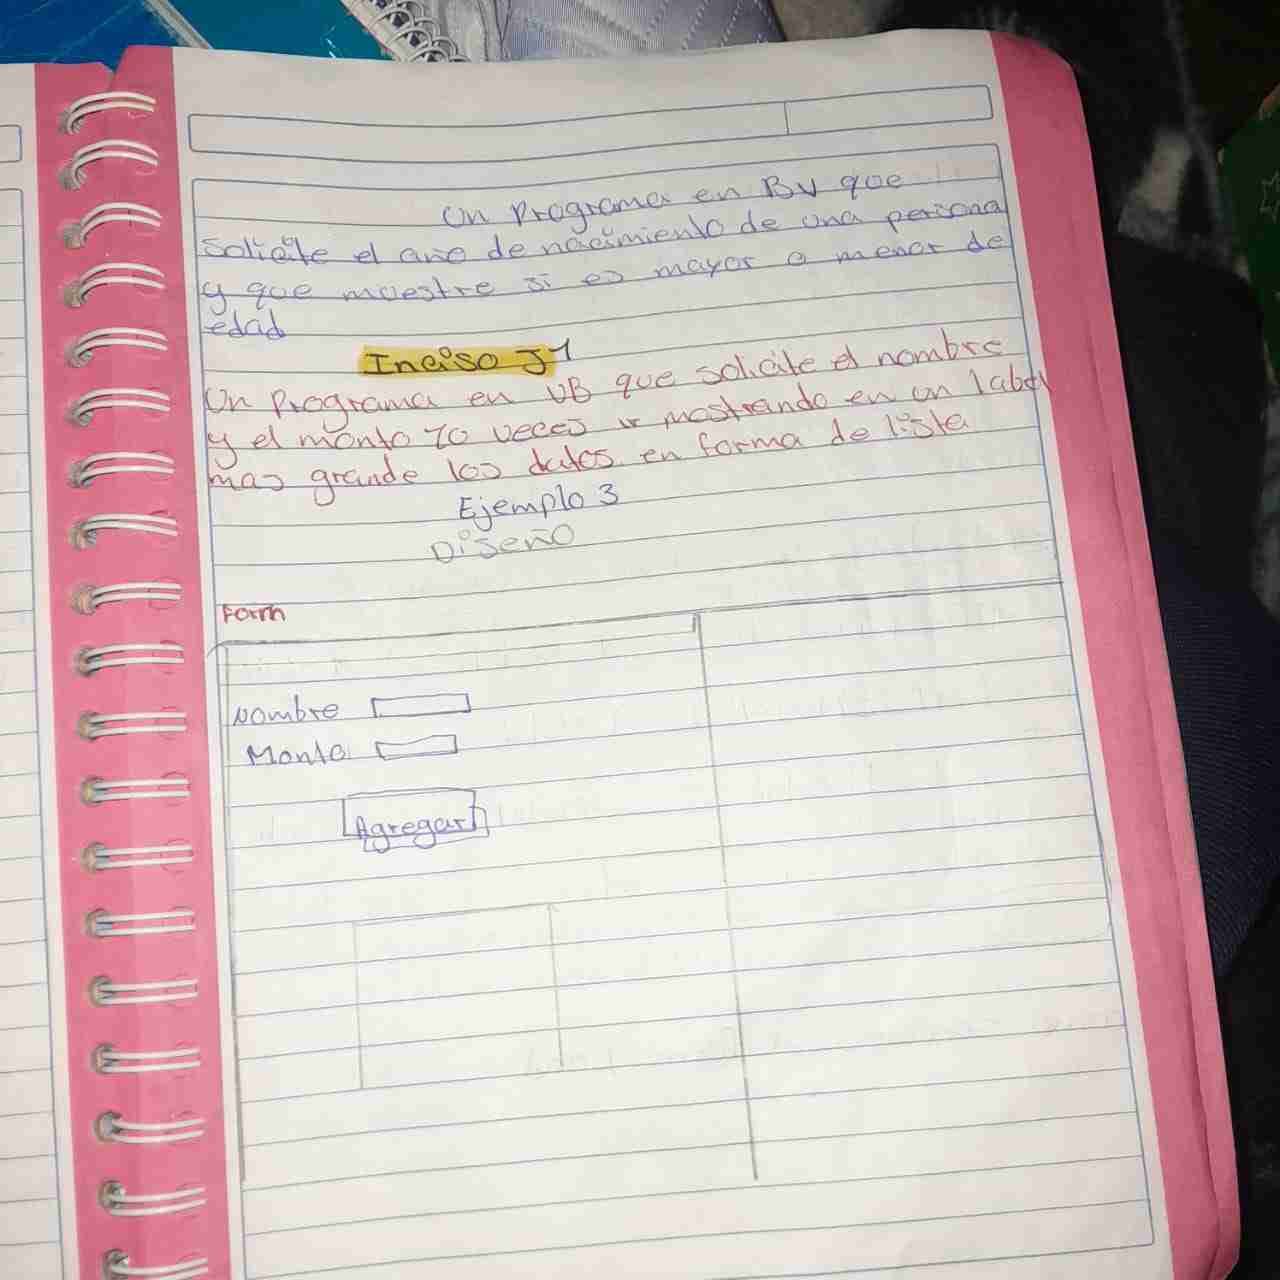 Un Programa en BV que
Solicite el año de nacimiento de una persona
y que muestre si es mayor o menor de
edad
Inciso J1
Un Programa en VB que solicite el nombre
y el monto 10 veces ir mostrando en un label
mas grande los datos en forma de lista
Ejemplo 3
Diseño
Form
Nombre
Monto
Agregar